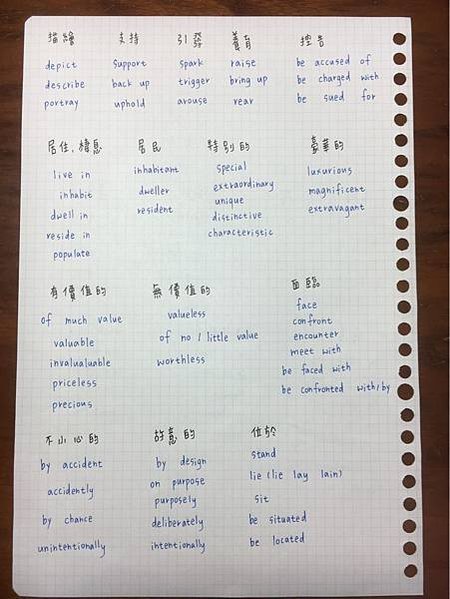 描繪 支持 引發 養育 控告
depict support spark raise be accused of
describe back up trigger bring up be charged with
portray uphold arouse rear be sued for
居住,棲息 居民 特別的 豪華的
live in inhabitant special luxurious
inhabit dweller extraordinary magnificent
dwell in resident unique extravagant
reside in distinctive
populate characteristic
有價值的 無價值的 面臨
of much value valueless face
valuable of no / little value confront
invaluable worthless encounter
priceless meet with
precious be faced with
be confronted with/by
不小心的 故意的 位於
by accident by design stand
accidently on purpose lie (lie lay lain)
by chance purposely sit
unintentionally deliberately be situated
intentionally be located